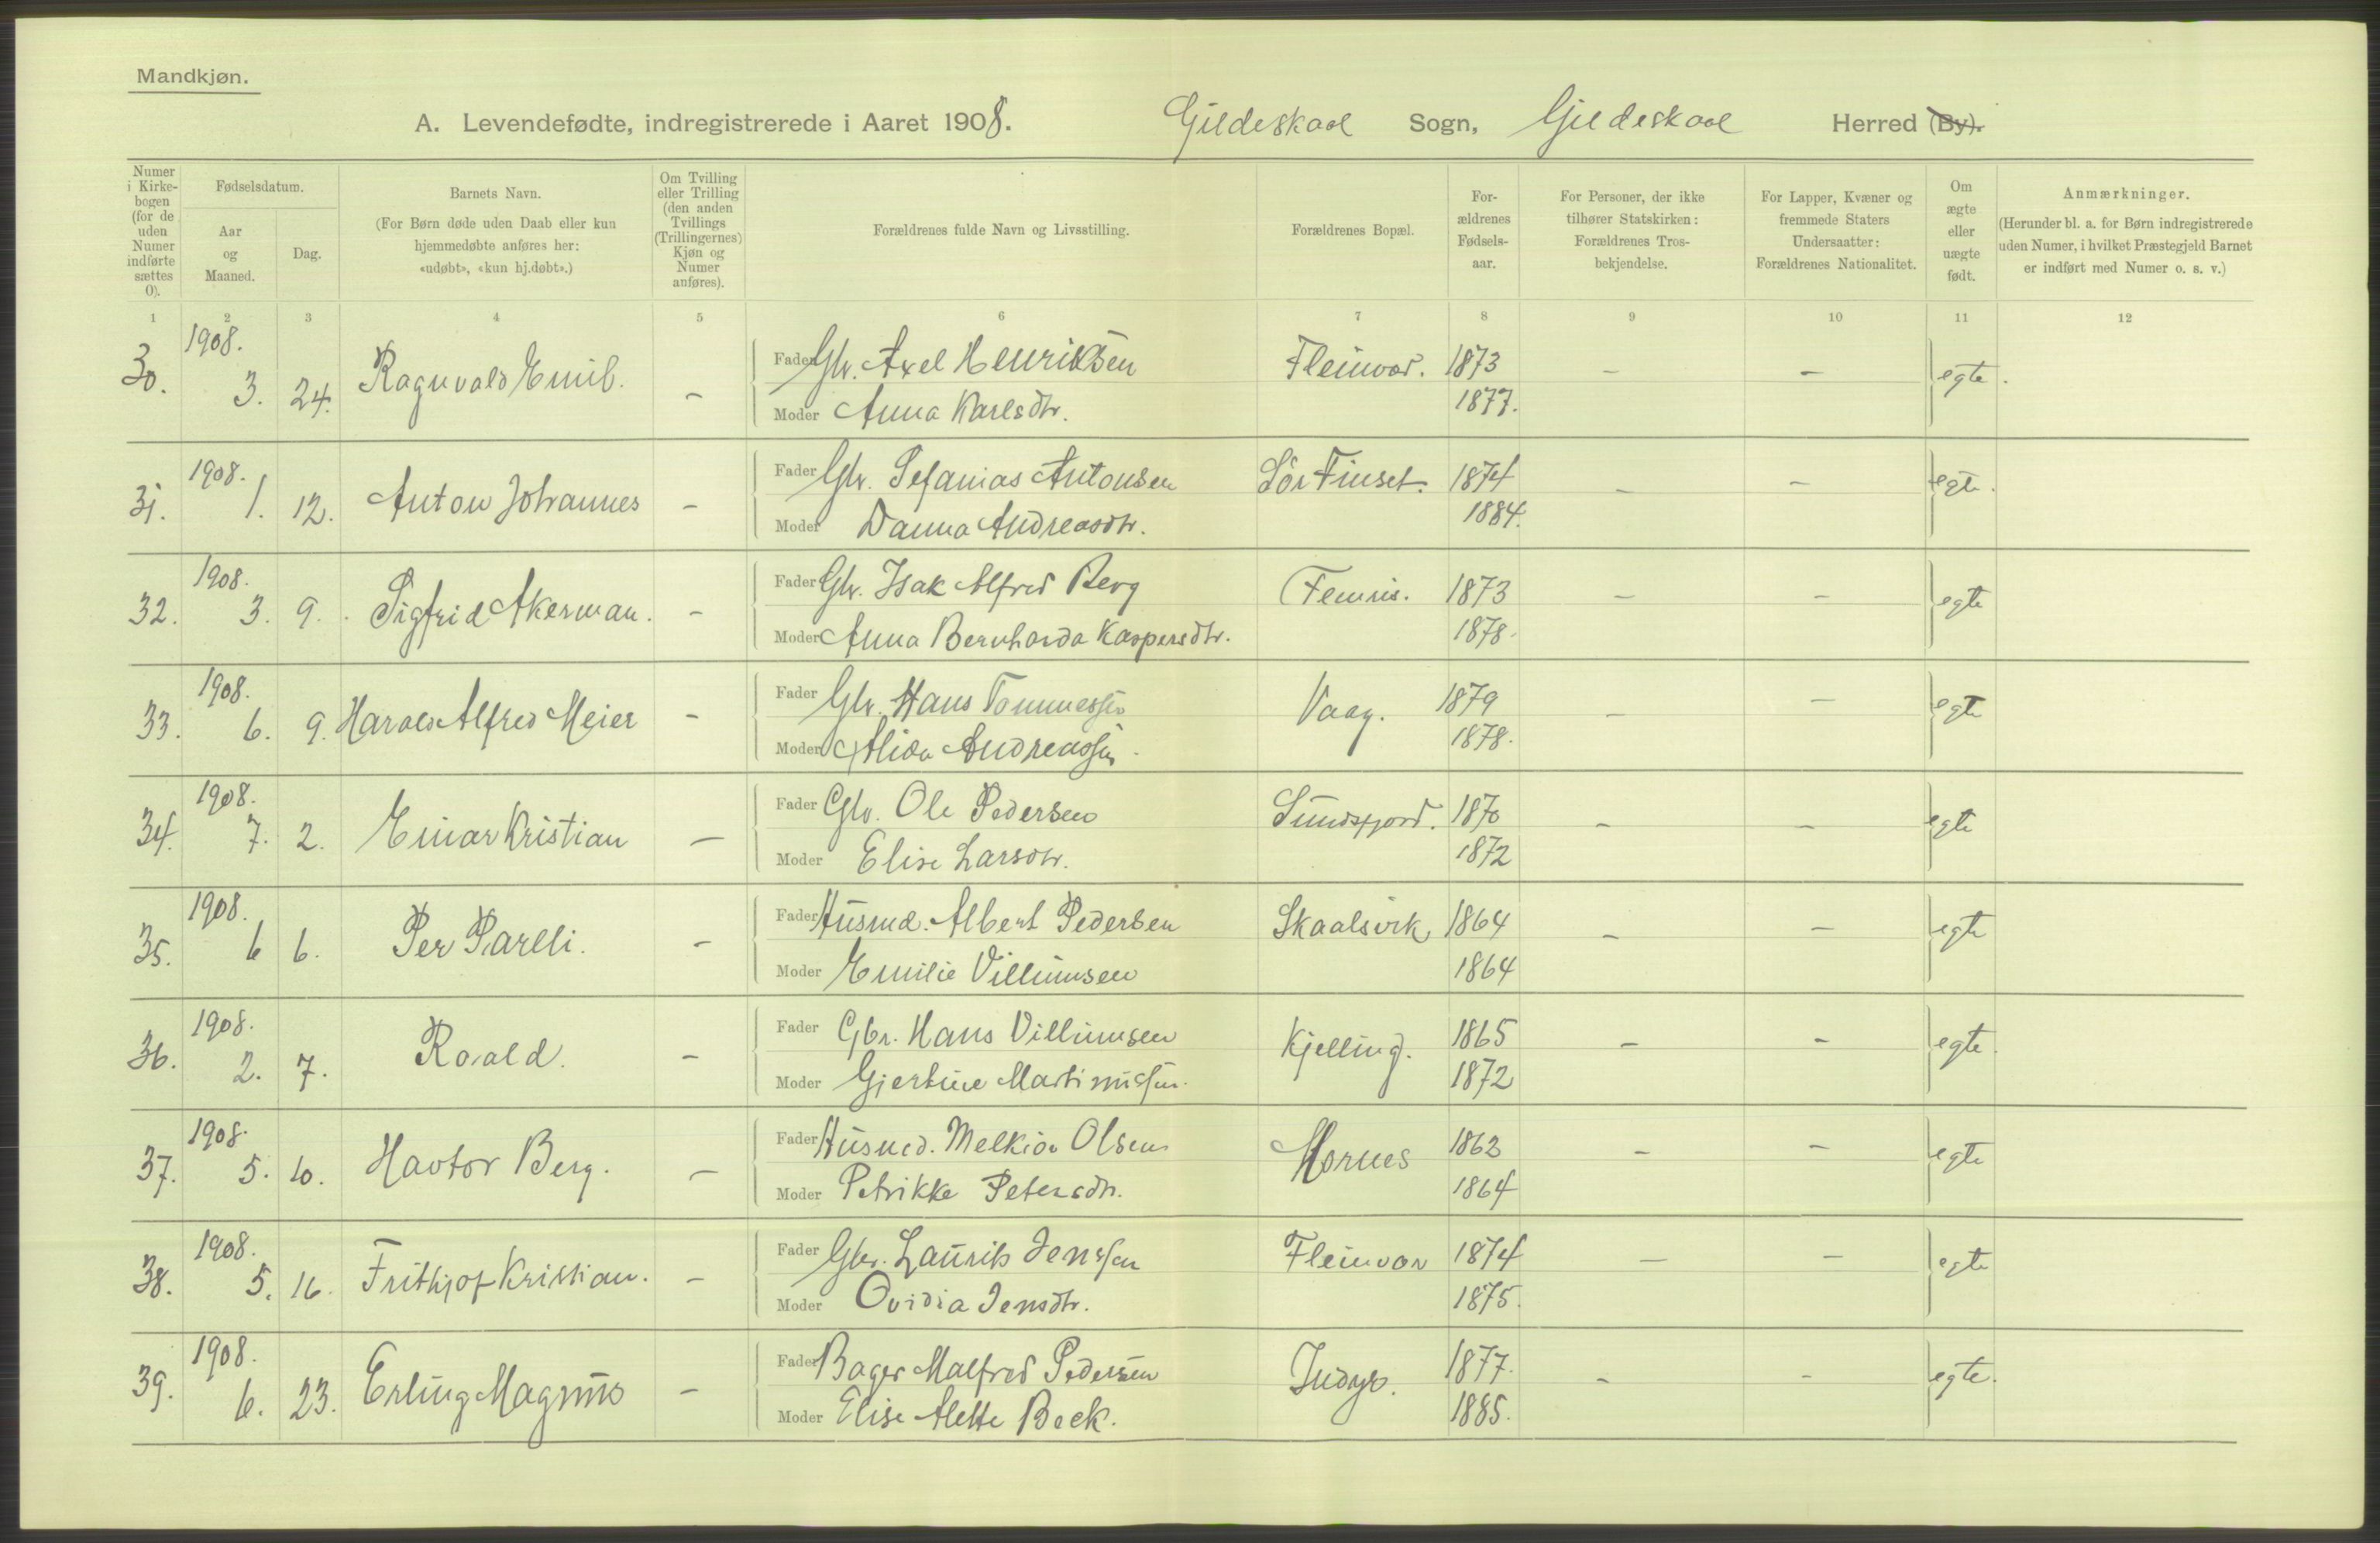 Mandkjøn.
A. Levendefødte, indregistrerede i Aaret 1908. Gildeskaal Sogn, Gildeskaal Herred (By).
Numer i Kirke-bogen (for de uden Numer indførte sættes 0).
Fødselsdatum.
Aar og Maaned.
Dag.
Barnets Navn.
(For Børn døde uden Daab eller kun hjemmedøbte anføres her: «udøbt», «kun hj.døbt».)
Om Tvilling eller Trilling (den anden Tvillings (Trillingernes) Kjøn og Numer anføres).
Forældrenes fulde Navn og Livsstilling.
Forældrenes Bopæl.
For-ældrenes Fødsels-aar.
For Personer, der ikke tilhører Statskirken: Forældrenes Tros-bekjendelse.
For Lapper, Kvæner og fremmede Staters Undersaatter: Forældrenes Nationalitet.
Om ægte eller uægte født.
Anmærkninger.
(Herunder bl. a. for Børn indregistrerede uden Numer, i hvilket Præstegjeld Barnet er indført med Numer o. s. v.)
1 2 3 4 5 6 7 8 9 10 11 12
30. 1908. 3. 24. Ragnvald Emil. - Fader Gbr. Axel Henriksen Fleinvær. 1873 - - egte.
Moder Anna Karlsdtr. 1877.
31. 1908. 1. 12. Anton Johannes - Fader Gbr. Sefanias Antonsen Sör Finset. 1874 - - egte.
Moder Danna Andreasdtr. 1884.
32. 1908. 3. 9. Sigfrid Akerman. - Fader Gbr. Isak Alfred Berg Femris. 1873 - - egte
Moder Anna Bernharda Kaspersdtr. 1878.
33. 1908. 6. 9. Harald Alfred Meier - Fader Gbr. Hans Tommessen Vaag. 1879 - - egte
Moder Alida Andreassen. 1878.
34. 1908. 7. 2. Einar Kristian - Fader Gbr. Ole Pedersen Sundsfjord. 1870 - - egte
Moder Elise Larsdtr. 1872
35. 1908. 6 6. Per Parelli. - Fader Husmd. Albert Pedersen Skaalsvik 1864 - - egte
Moder Emilie Villumsen 1864
36. 1908. 2. 7. Roald. - Fader Gbr. Hans Villumsen Kjelling. 1865 - - egte.
Moder Gjertine Martinussen. 1872
37. 1908. 5. 10. Havtor Berg. - Fader Husmd. Melkior Olsen Hornes 1863 - - egte
Moder Petrikke Petersdtr. 1864
38. 1908. 5. 16. Frithjof Kristian. - Fader Gbr. Laurits Jenssen Fleinvær 1874 - - egte
Moder Ovidia Jensdtr. 1875.
39. 1908. 6. 23. Erling Magnus - Fader Bager Malfred Pedersen Indyr. 1877. - - egte.
Moder Elise Alette Beck. 1885.